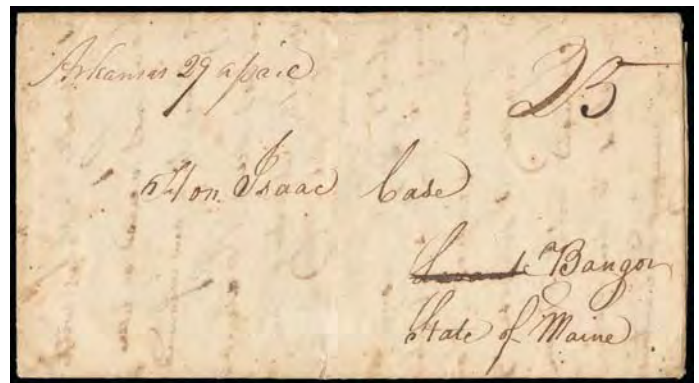 Arkansas 29 April
25
Hon. Isaac Case
Bangor
State of Maine